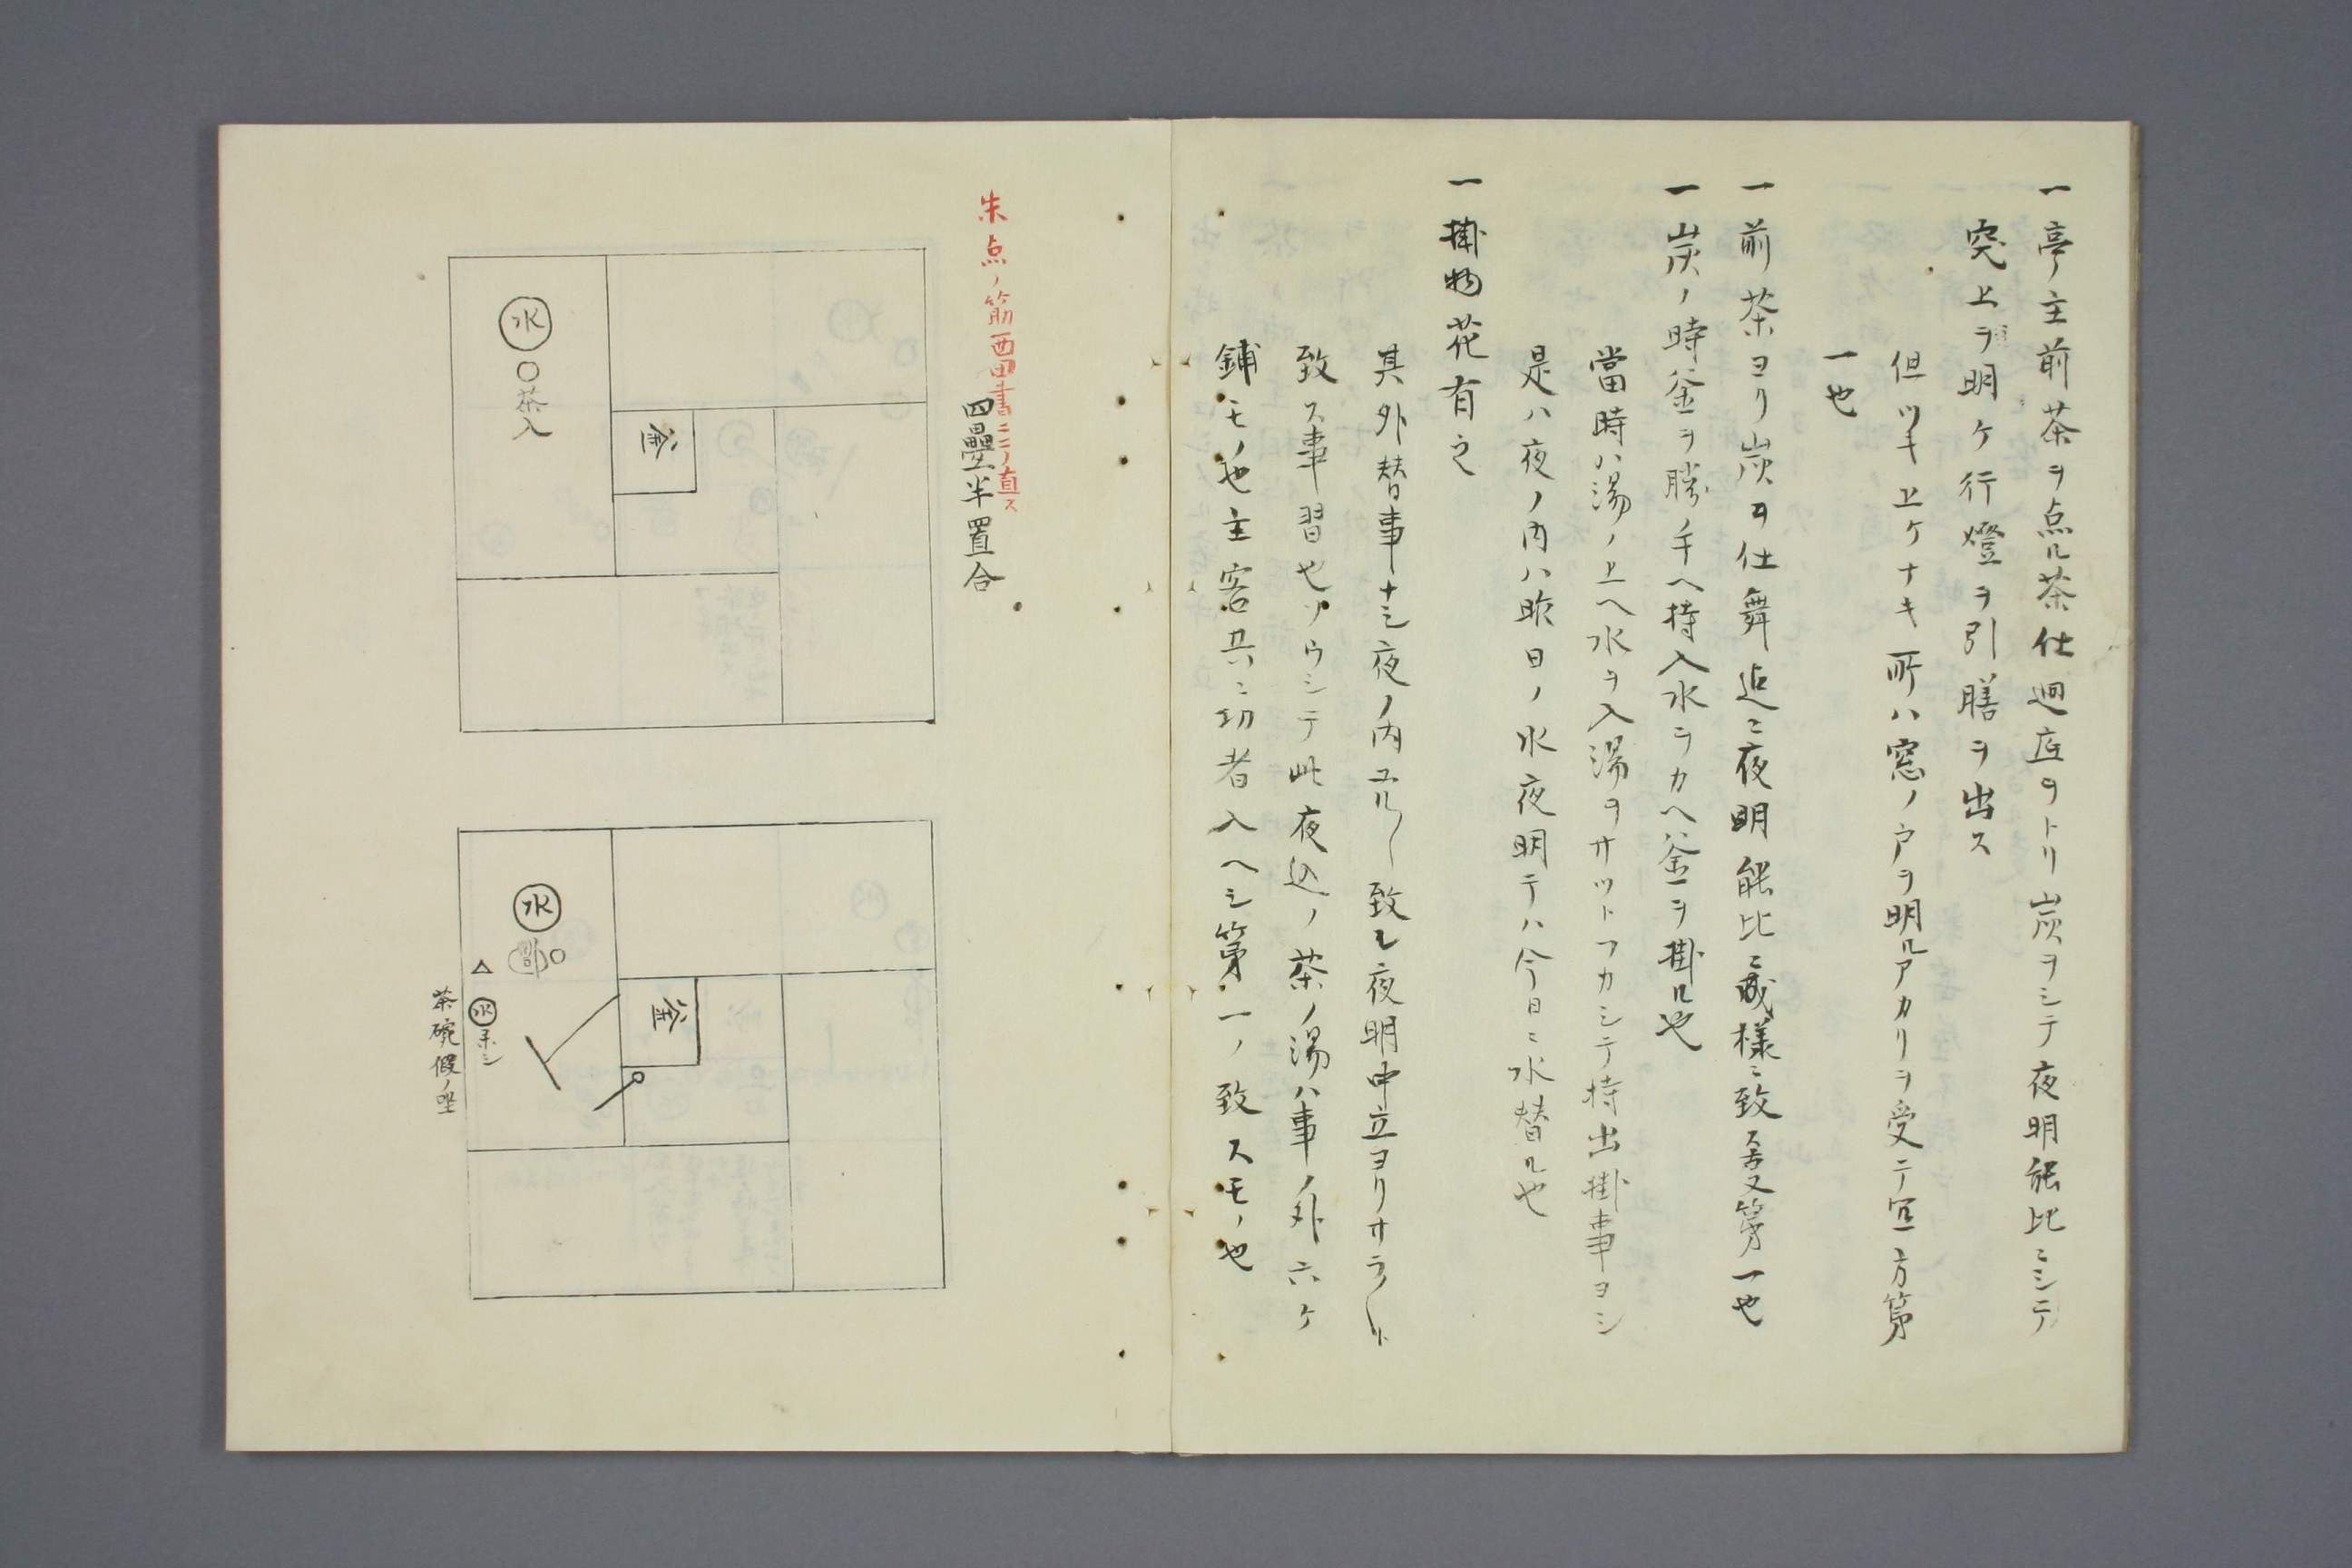 一亭主前茶ヲ点ル茶仕廻底ヲトリ炭ヲシテ夜明能比ニシテ
突上ヲ明ケ行燈ヲ引膳ヲ出ス
但ツキ上ケナキ所ハ窓ノ戸ヲ明ルアカリヲ受テ宜方第
一也
一前茶ヨリ炭ヲ仕舞迠ニ夜明能比ニ成様ニ致
第一也
一炭ノ時釜ヲ勝手ヘ持入水ヲカヘ釜ヲ掛ル也
當時ハ湯ノ上ヘ水ヲ入湯ヲサットフカシテ持出掛事ヨシ
是ハ夜ノ内ハ昨日ノ水夜明テハ今日ニ水替ル也
一掛物花有之
其外替事ナシ夜ノ内ユル〱致シ夜明中立ヨリサラ〱ト
致ス事習也ソウシテ此夜込ノ茶ノ湯ハ事ノ外六ケ
鋪モノ也主客共ニ功者入ヘシ第一ノ致スモノ也
朱点ノ筋西田書ニ直ス
四疊半置合
水
茶入
釜
水
釜
水
茶碗假ノ坐